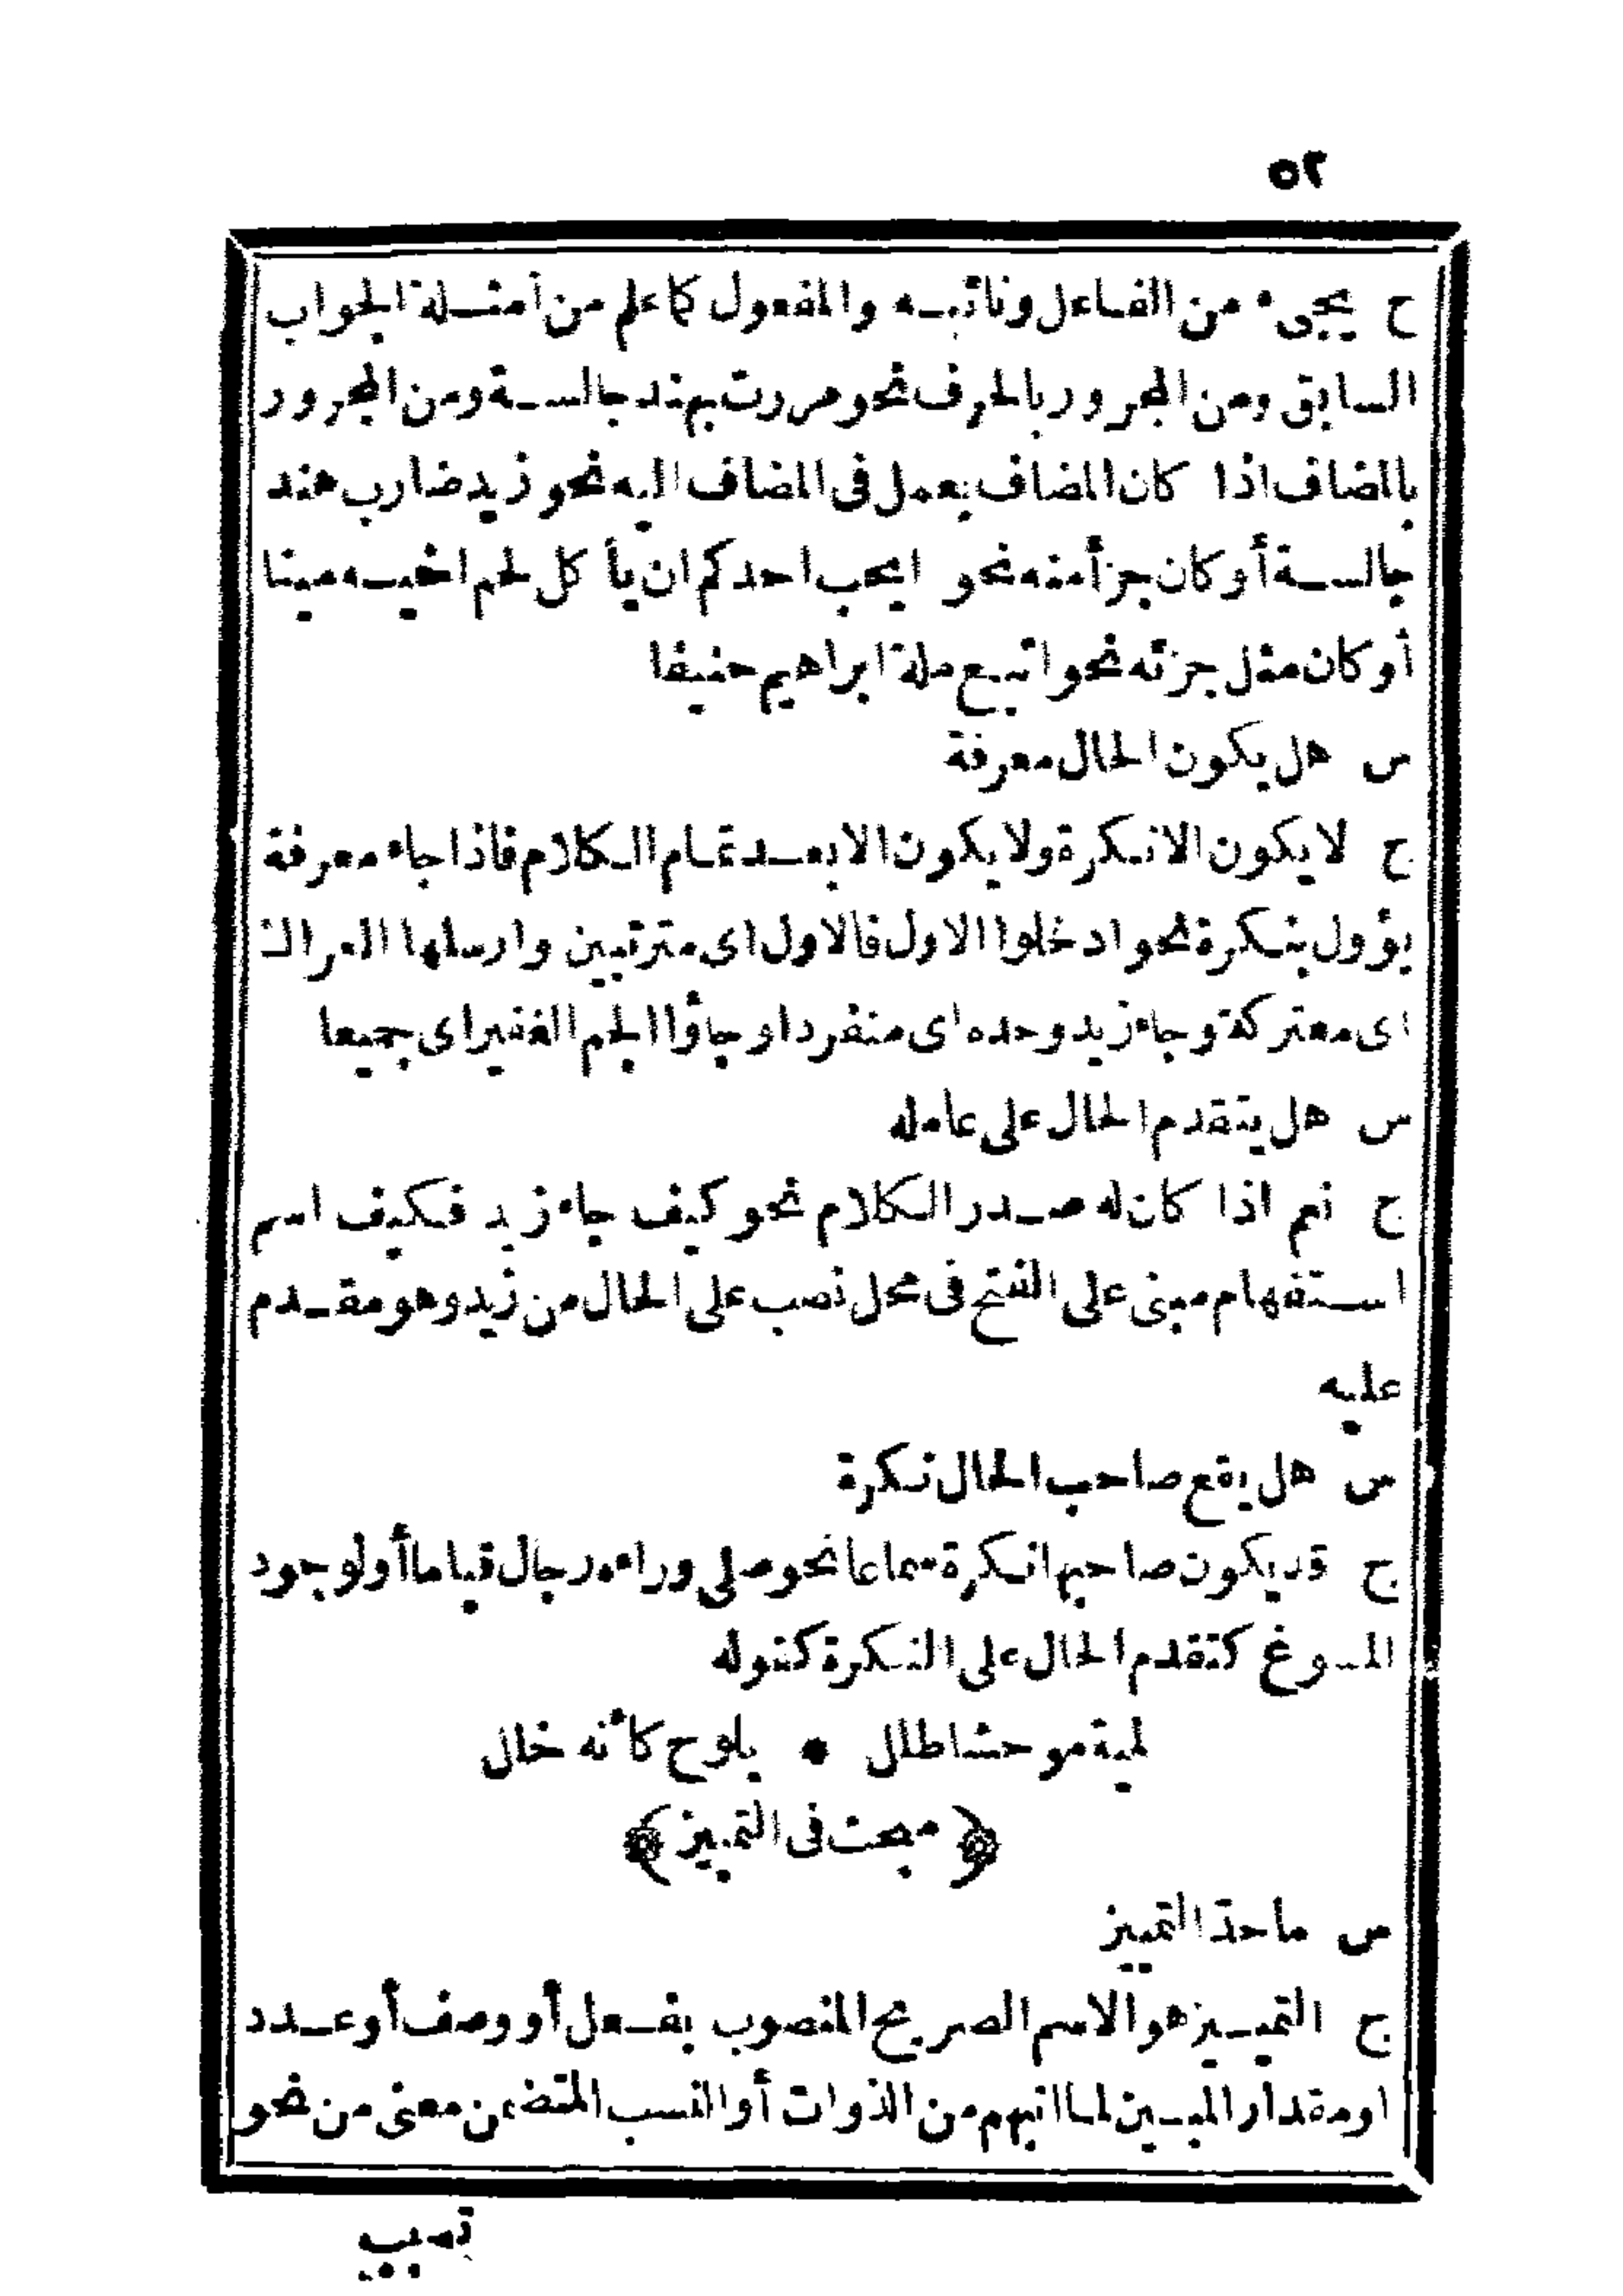 ٥٢
ج يجىء من الفاعل ونائبه والمفعول كما علم من أمثلة الجواب
السابق ومن المجرور بالحرف نحو مررت بهند جالسة ومن المجرور
بالمضاف اذا كان المضاف يعمل فى المضاف اليه نحو زيد ضارب هند
جالسة أو كان جزأ منه نحو ايحب احدكم ان يأكل لحم اخيه ميتا
أو كان مثل جزئه نحو اتبع ملة ابراهيم حنيفا
س هل يكون الحال معرفة
ج لا يكون الا نكرة ولا يكون الا بعد تمام الكلام فاذا جاء معرفة
يؤول بنكرة نحو ادخلوا الاول فالاول اى مترتبين وارسلها العراك
اى معتركة وجاء زيد وحده اى منفردا وجاؤا الجم الغفير اى جميعا
س هل يتقدم الحال على عامله
ج نعم اذا كان له صدر الكلام نحو كيف جاء زيد فكيف اسم
استفهام مبنى على الفتح فى محل نصب على الحال من زيد وهو مقدم
عليه
س هل يقع صاحب الحال نكرة
ج قد يكون صاحبها نكرة سماعا نحو صلى وراءه رجال قياما أو لوجود
المسوغ كتقدم الحال على النكرة كقوله
لمية موحشا طلل * يلوح كأنه خلل
﴿ مبحث فى التمييز ﴾
س ما حد التمييز
ج التمييز هو الاسم الصريح المنصوب بفعل أو وصف أو عدد
او مقدار المبين لما انبهم من الذوات أو النسب المتضمن معنى من نحو
تصبب